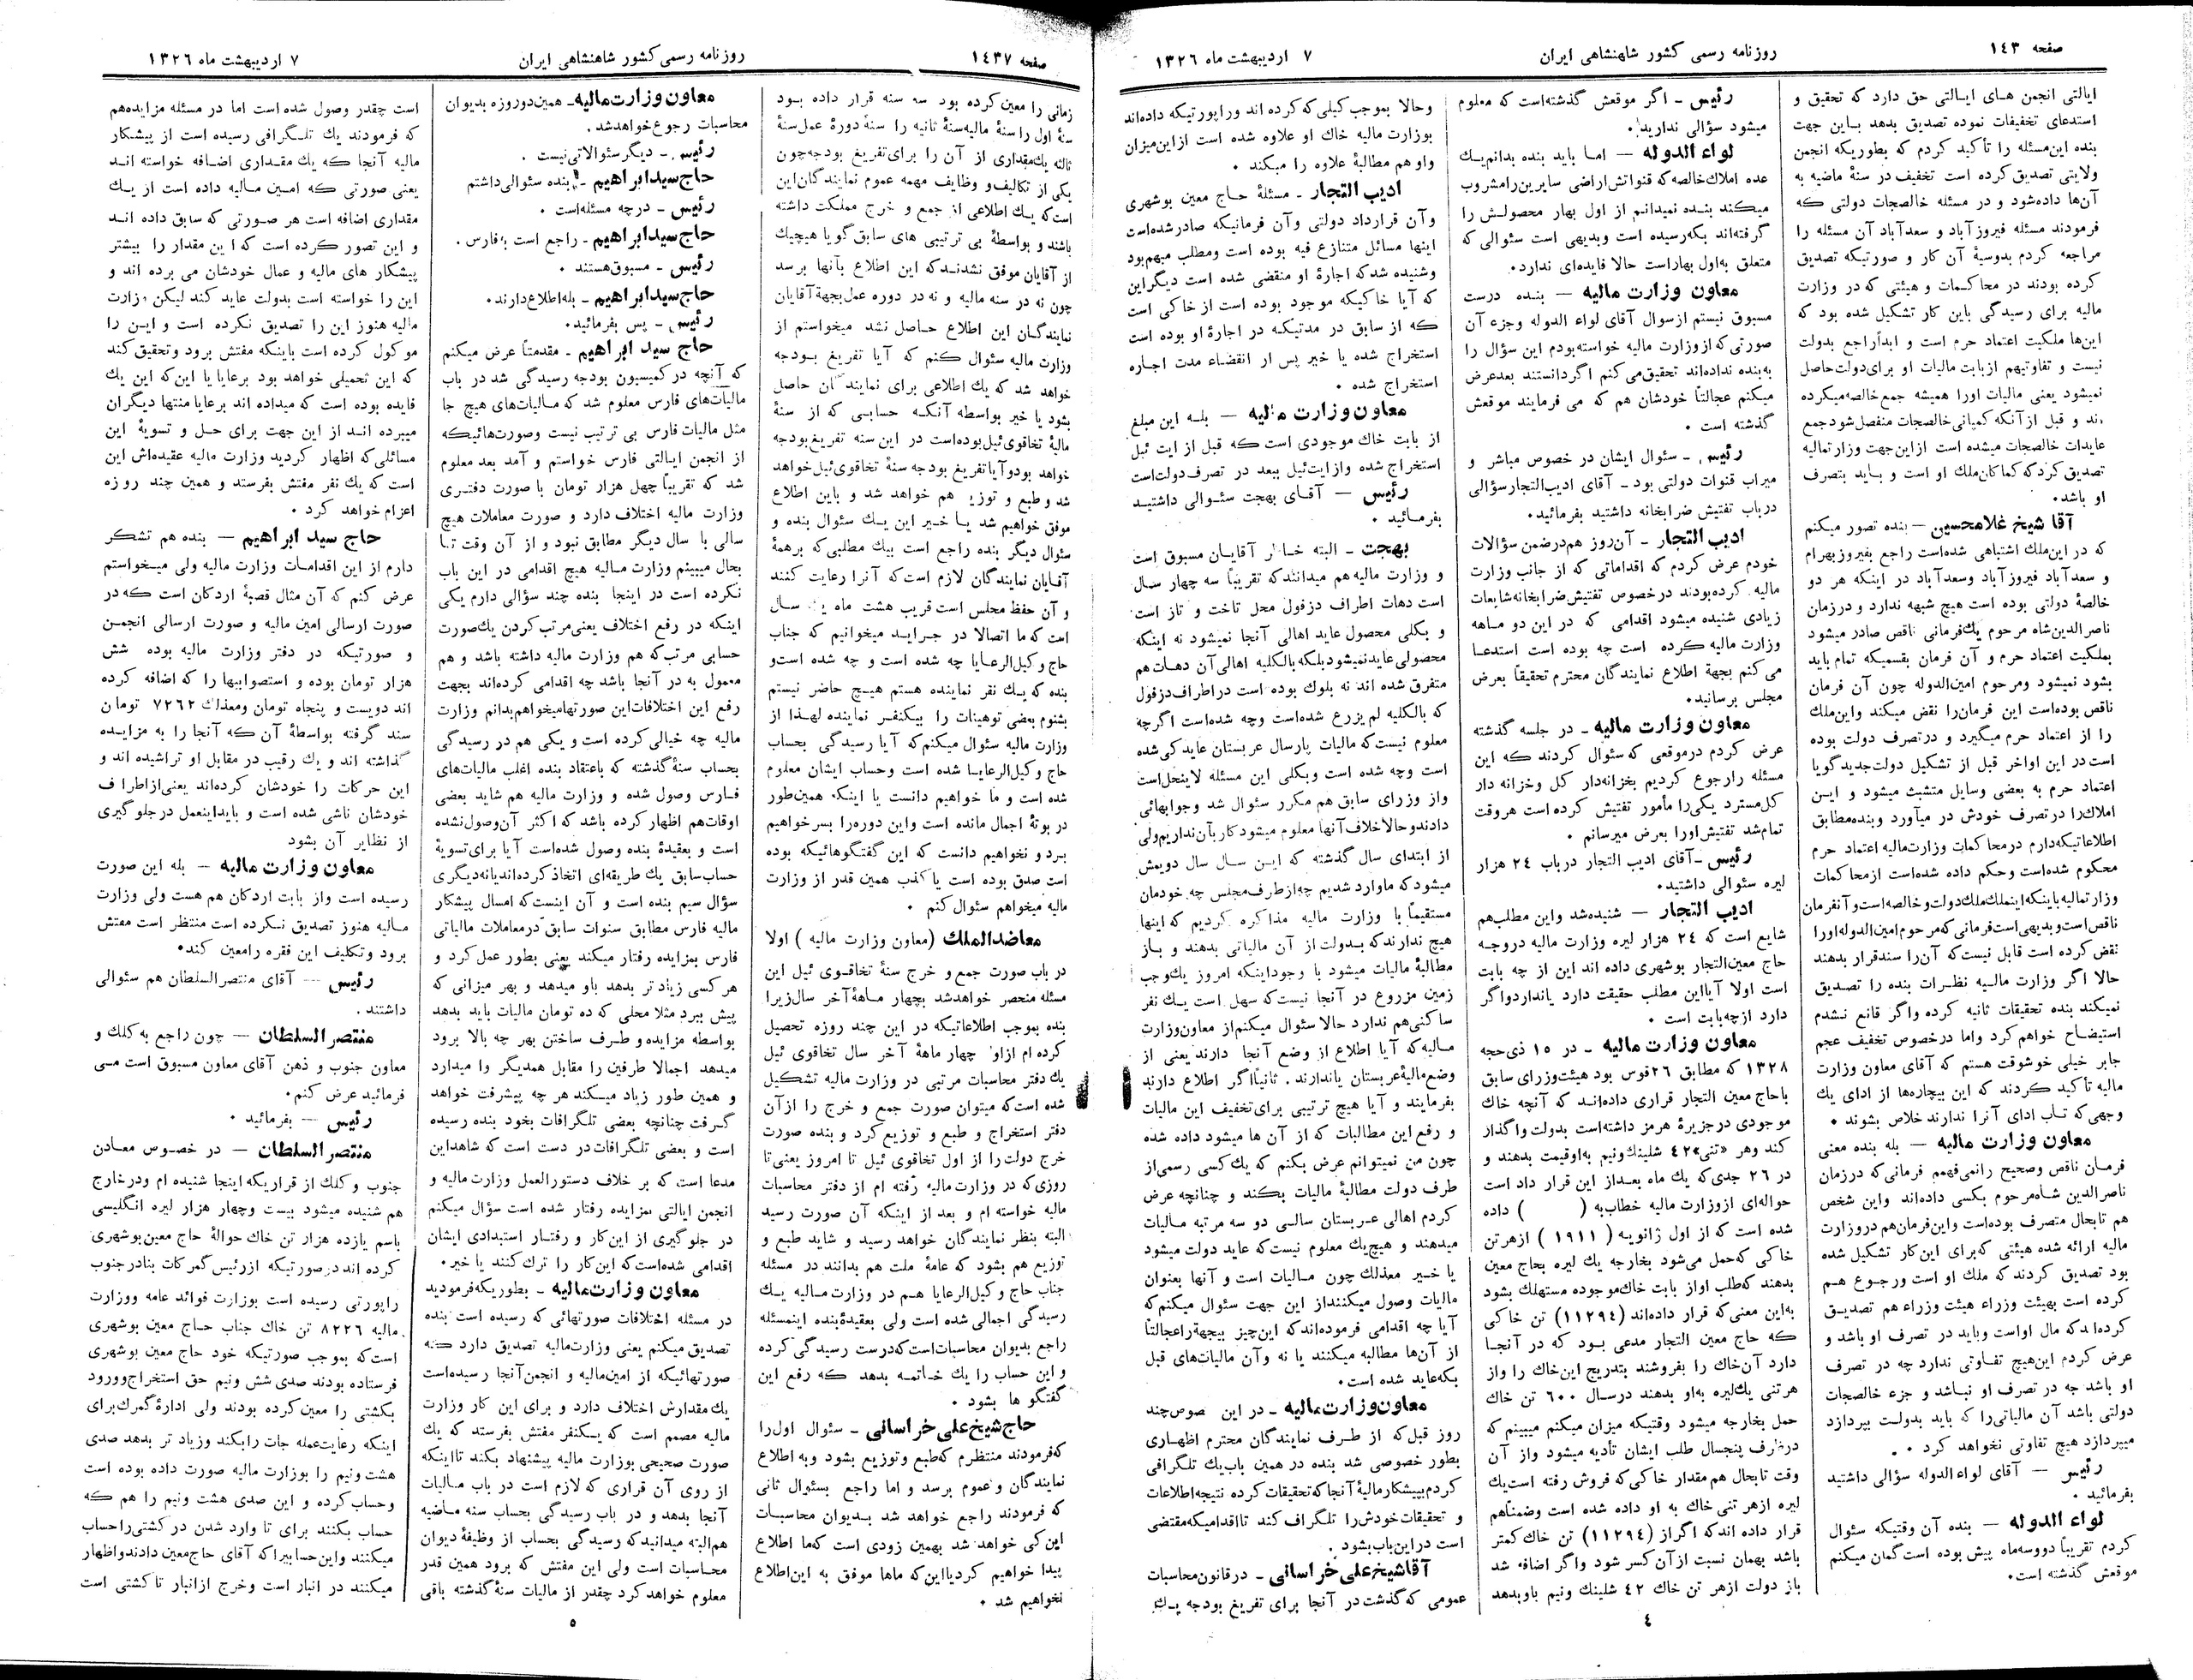 صفحه ١٤٣
روزنامه رسمی کشور شاهنشاهی ایران
٧ اردیبهشت ماه ١٣٢٦
ایالتی انجمن های ایالتی حق دارد که تحقیق و
استدعای تخفیفات نموده تصدیق بدهد باین جهت
بنده این مسئله را تأکید کردم که بطوریکه انجمن
ولایتی تصدیق کرده است تخفیف در سنهٔ ماضیه به
آن‌ها داده شود و در مسئله خالصجات دولتی که
فرمودند مسئله فیروز آباد و سعدآباد آن مسئله را
مراجعه کردم بدوسیهٔ آن کار و صورتیکه تصدیق
کرده بودند در محاکمات و هیئتی که در وزارت
مالیه برای رسیدگی باین کار تشکیل شده بود که
این‌ها ملکیت اعتماد حرم است و ابداً راجع بدولت
نیست و تفاوتهم از بابت مالیات او برای دولت حاصل
نمیشود یعنی مالیات اورا همیشه جمع خالصه میکرده
اند و قبل از آنکه کمپانی خالصجات منفصل شود جمع
عایدات خالصجات میشده است از این جهت وزارتمالیه
تصدیق کرد که کماکان ملك او است و باید بتصرف
او باشد.
آقا شیخ غلامحسین – بنده تصور میکنم
که در این ملك اشتباهی شده است راجع بفیروزبهرام
و سعدآباد فیروزآباد وسعدآباد در اینکه هر دو
خالصهٔ دولتی بوده است هیچ شبهه ندارد و درزمان
ناصرالدین‌شاه مرحوم یك فرمانی ناقص صادر میشود
بملکیت اعتماد حرم و آن فرمان بقسمیکه تمام باید
بشود نمیشود ومرحوم امین‌الدوله چون آن فرمان
ناقص بوده است این فرمان را نقض میکند واین ملك
را از اعتماد حرم میگیرد و درتصرف دولت بوده
است در این اواخر قبل از تشکیل دولت جدید گویا
اعتماد حرم به بعضی وسایل متشبث میشود و ایـن
املاك را در تصرف خودش در میآورد وبنده مطابق
اطلاعاتیکه دارم در محاکمات وزارت مالیه اعتماد حرم
محکوم شده است وحکم داده شده است از محاکمات
وزارتمالیه باینکه اینملك ملك دولت و خالصه است و آنفرمان
ناقص است وبدیهی است فرمانی که مرحوم امین‌الدوله اورا
نقض کرده است قابل نیست که آن را سند قرار بدهند
حالا اگر وزارت مالیه نظرات بنده را تصدیق
نمیکند بنده تحقیقات ثانیه کرده واگر قانع نشدم
استیضاح خواهم کرد واما درخصوص تخفیف عجم
جابر خیلی خوشوقت هستم که آقای معاون وزارت
مالیه تأکید کردند که این بیچاره‌ها از ادای یك
وجهی که تاب ادای آنرا ندارند خلاص بشوند .
معاون وزارت مالیه – بله بنده معنی
فرمان ناقص وصحیح را نمی‌فهمم فرمانی که در زمان
ناصرالدین شاه مرحوم بکسی داده‌اند واین شخص
هم تابحال متصرف بوده است واین فرمان هم در وزارت
مالیه ارائه شده هیئتی که برای این کار تشکیل شده
بود تصدیق کردند که ملك او است ورجوع هـم
کرده است بهیئت وزراء هیئت وزراء هم تصدیـق
کرده‌اند که مال اواست وباید در تصرف او باشد و
عرض کردم این هیچ تفاوتی ندارد چه در تصرف
او باشد چه در تصرف او نباشد و جزء خالصجات
دولتی باشد آن مالیاتی را که باید بدولت بپردازد
میپردازد هیچ تفاوتی نخواهد کرد .
رئیس – آقای لواء الدوله سؤالی داشتید
بفرمائید .
لواء الدوله – بنده آن وقتیکه سئوال
کردم تقریباً دو وسه‌ماه پیش بوده است گمان میکنم
موقعش گذشته است.
رئیس – اگر موقعش گذشته است که معلوم
میشود سؤالی ندارید.
لواء الدوله – اما باید بنده بدانم یـك
عده املاك خالصه که قنواتش اراضی سایرین را مشروب
میکند بنده نمیدانم از اول بهار محصولش را
گرفته‌اند بکه رسیده است وبدیهی است سئوالی که
متعلق به اول بهار است حالا فایده‌ای ندارد.
معاون وزارت مالیه – بنده درست
مسبوق نیستم از سوال آقای لواء الدوله وجزء آن
صورتی که از وزارت مالیه خواسته بودم این سؤال را
به بنده نداده‌اند تحقیق می‌کنم اگر دانستند بعد عرض
میکنم عجالتاً خودشان هم که می فرمایند موقعش
گذشته است .
رئیس – سئوال ایشان در خصوص مباشر و
میراب قنوات دولتی بود – آقای ادیب‌التجار سؤالی
در باب تفتیش ضرابخانه داشتید بفرمائید.
ادیب التجار – آن روز هم در ضمن سؤالات
خودم عرض کردم که اقداماتی که از جانب وزارت
مالیه کرده بودند در خصوص تفتیش ضرابخانه شایعات
زیادی شنیده میشود اقدامی که در این دو ماهه
وزارت مالیه کرده است چه بوده است استدعا
می کنم بجهة اطلاع نمایندگان محترم تحقیقاً بعرض
مجلس برسانید.
معاون وزارت مالیه – در جلسه گذشته
عرض کردم در موقعی که سئوال کردند که این
مسئله را رجوع کردیم بخزانه‌دار کل وخزانه دار
کل مسترد یکی را مأمور تفتیش کرده است هر وقت
تمام شد تفتیش اورا بعرض میرسانم .
رئیس – آقای ادیب التجار درباب ٢٤ هزار
لیره سئوالی داشتید.
ادیب التجار – شنیده شد واین مطلب هم
شایع است که ٢٤ هزار لیره وزارت مالیه در وجه
حاج معین‌التجار بوشهری داده اند این از چه بابت
است اولا آیا این مطلب حقیقت دارد یا ندارد و اگر
دارد از چه بابت است .
معاون وزارت مالیه – در ١٥ ذی‌حجه
١٣٢٨ که مطابق ٢٦ قوس بود هیئت وزرای سابق
باحاج معین التجار قراری داده‌اند که آنچه خاك
موجودی در جزیرهٔ هرمز داشته است بدولت واگذار
کند وهر «تنی» ٤٢ شلینك ونیم به او قیمت بدهند و
در ٢٦ جدی که یك ماه بعد از این قرار داد است
حواله‌ای از وزارت مالیه خطاب به ( ) داده
شده است که از اول ژانویه ( ١٩١١ ) از هر تن
خاکی که حمل می‌شود بخارجه یك لیره بحاج معین
بدهند که طلب او از بابت خاك موجوده مستهلك بشود
به این معنی که قرار داده‌اند (١١٢٩٤) تن خاکی
که حاج معین التجار مدعی بود که در آنجا
دارد آن خاك را بفروشند بتدریج این خاك را و از
هر تنی یك لیره به او بدهند در سال ٦٠٠ تن خاك
حمل بخارجه میشود وقتیکه میزان میکنم میبینم که
در ظرف پنجسال طلب ایشان تأدیه میشود و از آن
وقت تا بحال هم مقدار خاکی که فروش رفته است یك
لیره از هر تنی خاك به او داده شده است وضمناً هم
قرار داده اند که اگر از (١١٢٩٤) تن خاك کمتر
باشد بهمان نسبت از آن کسر شود واگر اضافه شد
باز دولت از هر تن خاك ٤٢ شلینك ونیم باو بدهد
وحالا بموجب کیلی که کرده اند و راپورتیکه داده‌اند
بوزارت مالیه خاك او علاوه شده است از این میزان
واو هم مطالبهٔ علاوه را میکند .
ادیب التجار – مسئلهٔ حاج معین بوشهری
وآن قرارداد دولتی وآن فرمانیکه صادر شده است
اینها مسائل متنازع فیه بوده است ومطلب مبهم بود
وشنیده شد که اجارهٔ او منقضی شده است دیگر این
که آیا خاکیکه موجود بوده است از خاکی است
که از سابق در مدتیکه در اجارهٔ او بوده است
استخراج شده یا خیر پس از انقضاء مدت اجاره
استخراج شده .
معاون وزارت مالیه – بله این مبلغ
از بابت خاك موجودی است که قبل از ایت ئیل
استخراج شده و از ایت ئیل ببعد در تصرف دولت است
رئیس – آقای بهجت سئوالی داشتید
بفرمائید .
بهجت – البته خاطر آقایان مسبوق است
و وزارت مالیه هم میدانند که تقریباً سه چهار سال
است دهات اطراف دزفول محل تاخت و تاز است
و بکلی محصول عاید اهالی آنجا نمیشود نه اینکه
محصولی عاید نمیشود بلکه بالکلیه اهالی آن دهات هم
متفرق شده اند نه بلوك بوده است در اطراف دزفول
که بالکلیه لم یزرع شده است وچه شده است اگرچه
معلوم نیست که مالیات پارسال عربستان عاید کی شده
است وچه شده است و بکلی این مسئله لاینحل است
و از وزرای سابق هم مکرر سئوال شد و جوابهائی
دادند و حالا خلاف آنها معلوم میشود کار بآن نداریم ولی
از ابتدای سال گذشته که این سال سال دویمش
میشود که ماوارد شدیم چه از طرف مجلس چه خودمان
مستقیماً با وزارت مالیه مذاکره کردیم که اینها
هیچ ندارند که بدولت از آن مالیاتی بدهند و باز
مطالبهٔ مالیات میشود با وجود اینکه امروز یك وجب
زمین مزروع در آنجا نیست که سهل است یك نفر
ساکنی هم ندارد حالا سئوال میکنم از معاون وزارت
مالیه که آیا اطلاع از وضع آنجا دارند یعنی از
وضع مالیهٔ عربستان یا ندارند . ثانیاً اگر اطلاع دارند
بفرمایند و آیا هیچ ترتیبی برای تخفیف این مالیات
و رفع این مطالبات که از آن ها میشود داده شده
چون من نمیتوانم عرض بکنم که یك کسی رسمی از
طرف دولت مطالبهٔ مالیات بکند و چنانچه عرض
کردم اهالی عربستان سالی دو سه مرتبه مالیات
میدهند و هیچیك معلوم نیست که عاید دولت میشود
یا خیر معذلك چون مالیات است و آنها بعنوان
مالیات وصول میکنند از این جهت سئوال میکنم که
آیا چه اقدامی فرموده‌اند که این چیز بیجهة را عجالتاً
از آن‌ها مطالبه میکنند یا نه وآن مالیات‌های قبل
بکه عاید شده است.
معاون وزارت مالیه – در این خصوص چند
روز قبل که از طرف نمایندگان محترم اظهاری
بطور خصوصی شد بنده در همین باب یك تلگرافی
کردم بپیشکار مالیهٔ آنجا که تحقیقات کرده نتیجه اطلاعات
و تحقیقات خودش را تلگراف کند تا اقدامیکه مقتضی
است در این باب بشود .
آقا شیخ علی خراسانی – در قانون محاسبات
عمومی که گذشت در آنجا برای تفریغ بودجه یك
٤
صفحه ١٤٣٧
روزنامه رسمی کشور شاهنشاهی ایران
٧ اردیبهشت ماه ١٣٢٦
زمانی را معین کرده بود سه سنه قرار داده بود
سنهٔ اول را سنهٔ مالیه سنهٔ ثانیه را سنهٔ دورهٔ عمل سنهٔ
ثالثه یك مقداری از آن را برای تفریغ بودجه چون
یکی از تکالیف و وظایف مهمه عموم نمایندگان این
است که یك اطلاعی از جمع و خرج مملکت داشته
باشند و بواسطهٔ بی ترتیبی های سابق گویا هیچیك
از آقایان موفق نشدند که این اطلاع بآنها برسد
چون نه در سنه مالیه و نه در دوره عمل بجهة آقایان
نمایندگان این اطلاع حاصل نشد میخواستم از
وزارت مالیه سئوال کنم که آیا تفریغ بودجه
خواهد شد که یك اطلاعی برای نمایندگان حاصل
بشود یا خیر بواسطه آنکه حسابی که از سنهٔ
مالیهٔ تخاقوی ئیل بوده است در این سنه تفریغ بودجه
خواهد بود و آیا تفریغ بودجه سنهٔ تخاقوی ئیل خواهد
شد و طبع و توزیع هم خواهد شد و باین اطلاع
موفق خواهیم شد یا خیر این یك سئوال بنده و
سئوال دیگر بنده راجع است بیك مطلبی که برهمهٔ
آقایان نمایندگان لازم است که آنرا رعایت کنند
و آن حفظ مجلس است قریب هشت ماه یك سال
است که ما اتصالا در جراید میخوانیم که جناب
حاج وکیل‌الرعایا چه شده است و چه شده است و
بنده که یك نفر نماینده هستم هیچ حاضر نیستم
بشنوم بعضی توهینات را بیکنفر نماینده لهذا از
وزارت مالیه سئوال میکنم که آیا رسیدگی بحساب
حاج وکیل‌الرعایا شده است وحساب ایشان معلوم
شده است و ما خواهیم دانست یا اینکه همین‌طور
در بوتهٔ اجمال مانده است و این دوره را بسر خواهیم
برد و نخواهیم دانست که این گفتگوهائیکه بوده
است صدق بوده است یا کذب همین قدر از وزارت
مالیه میخواهم سئوال کنم .
معاضدالملك (معاون وزارت مالیه ) اولا
در باب صورت جمع و خرج سنهٔ تخاقوی ئیل این
مسئله منحصر خواهد شد بچهار ماههٔ آخر سال زیرا
بنده بموجب اطلاعاتیکه در این چند روزه تحصیل
کرده ام از اول چهار ماههٔ آخر سال تخاقوی ئیل
یك دفتر محاسبات مرتبی در وزارت مالیه تشکیل
شده است که میتوان صورت جمع و خرج را از آن
دفتر استخراج و طبع و توزیع کرد و بنده صورت
خرج دولت را از اول تخاقوی ئیل تا امروز یعنی تا
روزی که در وزارت مالیه رفته ام از دفتر محاسبات
مالیه خواسته ام و بعد از اینکه آن صورت رسید
البته بنظر نمایندگان خواهد رسید و شاید طبع و
توزیع هم بشود که عامهٔ ملت هم بدانند در مسئله
جناب حاج وکیل‌الرعایا هم در وزارت مالیه یك
رسیدگی اجمالی شده است ولی بعقیدهٔ بنده اینمسئله
راجع بدیوان محاسبات است که درست رسیدگی کرده
و این حساب را یك خاتمه بدهد که رفع این
گفتگو ها بشود .
حاج شیخ علی خراسانی – سئوال اول را
که فرمودند منتظرم که طبع و توزیع بشود و به اطلاع
نمایندگان و عموم برسد و اما راجع بسئوال ثانی
که فرمودند راجع خواهد شد بدیوان محاسبات
این کی خواهد شد بهمین زودی است که ما اطلاع
پیدا خواهیم کرد یا این که ماها موفق به این اطلاع
نخواهیم شد .
معاون وزارت مالیه – همین دوروزه بدیوان
محاسبات رجوع خواهد شد.
رئیس – دیگر سئوالاتی نیست .
حاج سید ابراهیم – بنده سئوالی داشتم
رئیس – در چه مسئله است .
حاج سید ابراهیم – راجع است بفارس .
رئیس – مسبوق هستند .
حاج سید ابراهیم – بله اطلاع دارند.
رئیس – پس بفرمائید.
حاج سید ابراهیم – مقدمتاً عرض میکنم
که آنچه در کمیسیون بودجه رسیدگی شد در باب
مالیات‌های فارس معلوم شد که مالیات‌های هیچ جا
مثل مالیات فارس بی ترتیب نیست وصورت‌هائیکه
از انجمن ایالتی فارس خواستم و آمد بعد معلوم
شد که تقریباً چهل هزار تومان با صورت دفتری
وزارت مالیه اختلاف دارد و صورت معاملات هیچ
سالی با سال دیگر مطابق نبود و از آن وقت تا
بحال میبینم وزارت مالیه هیچ اقدامی در این باب
نکرده است در اینجا بنده چند سؤالی دارم یکی
اینکه در رفع اختلاف یعنی مرتب کردن یك صورت
حسابی مرتب که هم وزارت مالیه داشته باشد و هم
معمول به در آنجا باشد چه اقدامی کرده‌اند بجهت
رفع این اختلافات این صورتها میخواهم بدانم وزارت
مالیه چه خیالی کرده است و یکی هم در رسیدگی
بحساب سنهٔ گذشته که باعتقاد بنده اغلب مالیات‌های
فارس وصول شده و وزارت مالیه هم شاید بعضی
اوقات هم اظهار کرده باشد که اکثر آن وصول نشده
است و بعقیدهٔ بنده وصول شده است آیا برای تسویهٔ
حساب سابق یك طریقه‌ای اتخاذ کرده‌اند یا نه دیگری
سؤال سیم بنده است و آن اینست که امسال پیشکار
مالیه فارس مطابق سنوات سابق در معاملات مالیاتی
فارس بمزایده رفتار میکند یعنی بطور عمل کرد و
هر کسی زیاد تر بدهد باو میدهد و بهر میزانی که
پیش ببرد مثلا محلی که ده تومان مالیات باید بدهد
بواسطه مزایده و طرف ساختن بهر چه بالا برود
میدهد اجمالا طرفین را مقابل همدیگر وا میدارد
و همین طور زیاد میکند هر چه پیشرفت خواهد
گرفت چنانچه بعضی تلگرافات بخود بنده رسیده
است و بعضی تلگرافات در دست است که شاهد این
مدعا است که بر خلاف دستورالعمل وزارت مالیه و
انجمن ایالتی بمزایده رفتار شده است سؤال میکنم
در جلو گیری از این کار و رفتار استبدادی ایشان
اقدامی شده است که این کار را ترك کنند یا خیر.
معاون وزارت مالیه – بطوریکه فرمودید
در مسئله اختلافات صورتهائی که رسیده است بنده
تصدیق میکنم یعنی وزارت مالیه تصدیق دارد که
صورتهائیکه از امین مالیه و انجمن آنجا رسیده است
یك مقدارش اختلاف دارد و برای این کار وزارت
مالیه مصمم است که یکنفر مفتش بفرستد که یك
صورت صحیحی بوزارت مالیه پیشنهاد بکند تا اینکه
از روی آن قراری که لازم است در باب مالیات
آنجا بدهد و در باب رسیدگی بحساب سنه ماضیه
هم البته میدانید که رسیدگی بحساب از وظیفهٔ دیوان
محاسبات است ولی این مفتش که برود همین قدر
معلوم خواهد کرد چقدر از مالیات سنهٔ گذشته باقی
است چقدر وصول شده است اما در مسئله مزایده هم
که فرمودند یك تلگرافی رسیده است از پیشکار
مالیه آنجا که یك مقداری اضافه خواسته اند
یعنی صورتی که امین مالیه داده است از یك
مقداری اضافه است هر صورتی که سابق داده اند
و این تصور کرده است که این مقدار را بیشتر
پیشکار های مالیه و عمال خودشان می برده اند و
این را خواسته است بدولت عاید کند لیکن وزارت
مالیه هنوز این را تصدیق نکرده است و این را
موکول کرده است باینکه مفتش برود وتحقیق کند
که این تحمیلی خواهد بود برعایا یا این که این یك
فایده بوده است که میداده اند برعایا منتها دیگران
میبرده اند از این جهت برای حل و تسویهٔ این
مسائلی که اظهار کردید وزارت مالیه عقیده‌اش این
است که یك نفر مفتش بفرستد و همین چند روزه
اعزام خواهد کرد .
حاج سید ابراهیم – بنده هم تشکر
دارم از این اقدامات وزارت مالیه ولی میخواستم
عرض کنم که آن مثال قصبهٔ اردکان است که در
صورت ارسالی امین مالیه و صورت ارسالی انجمن
و صورتیکه در دفتر وزارت مالیه بوده شش
هزار تومان بوده و استصوابیها را که اضافه کرده
اند دویست و پنجاه تومان ومعذلك ٧٢٦٢ تومان
سند گرفته بواسطهٔ آن که آنجا را به مزایده
گذاشته اند و یك رقیب در مقابل او تراشیده اند و
این حرکات را خودشان کرده‌اند یعنی از اطراف
خودشان ناشی شده است و باید اینعمل در جلو گیری
از نظایر آن بشود
معاون وزارت مالیه – بله این صورت
رسیده است و از بابت اردکان هم هست ولی وزارت
مالیه هنوز تصدیق نکرده است منتظر است مفتش
برود وتکلیف این فقره را معین کند.
رئیس – آقای منتصر السلطان هم سئوالی
داشتند .
منتصر السلطان – چون راجع به کلك و
معاون جنوب و ذهن آقای معاون مسبوق است می
فرمائید عرض کنم.
رئیس – بفرمائید .
منتصر السلطان – در خصوص معادن
جنوب وکلك از قراریکه اینجا شنیده ام ودر خارج
هم شنیده میشود بیست وچهار هزار لیره انگلیسی
باسم یازده هزار تن خاك حوالهٔ حاج معین بوشهری
کرده اند در صورتیکه از رئیس گمرکات بنادر جنوب
راپورتی رسیده است بوزارت فوائد عامه ووزارت
مالیه ٨٢٢٦ تن خاك جناب حاج معین بوشهری
است که بموجب صورتیکه خود حاج معین بوشهری
فرستاده بودند صدی شش ونیم حق استخراج و ورود
بکشتی را معین کرده بودند ولی ادارهٔ گمرك برای
اینکه رعایت عمله جات را بکند وزیاد تر بدهد صدی
هشت ونیم را بوزارت مالیه صورت داده بوده است
وحساب کرده و این صدی هشت ونیم را هم که
حساب بکنند برای تا وارد شدن در کشتی را حساب
میکنند واین حسابیرا که آقای حاج معین دادند و اظهار
میکنند در انبار است وخرج از انبار تا کشتی است
٥